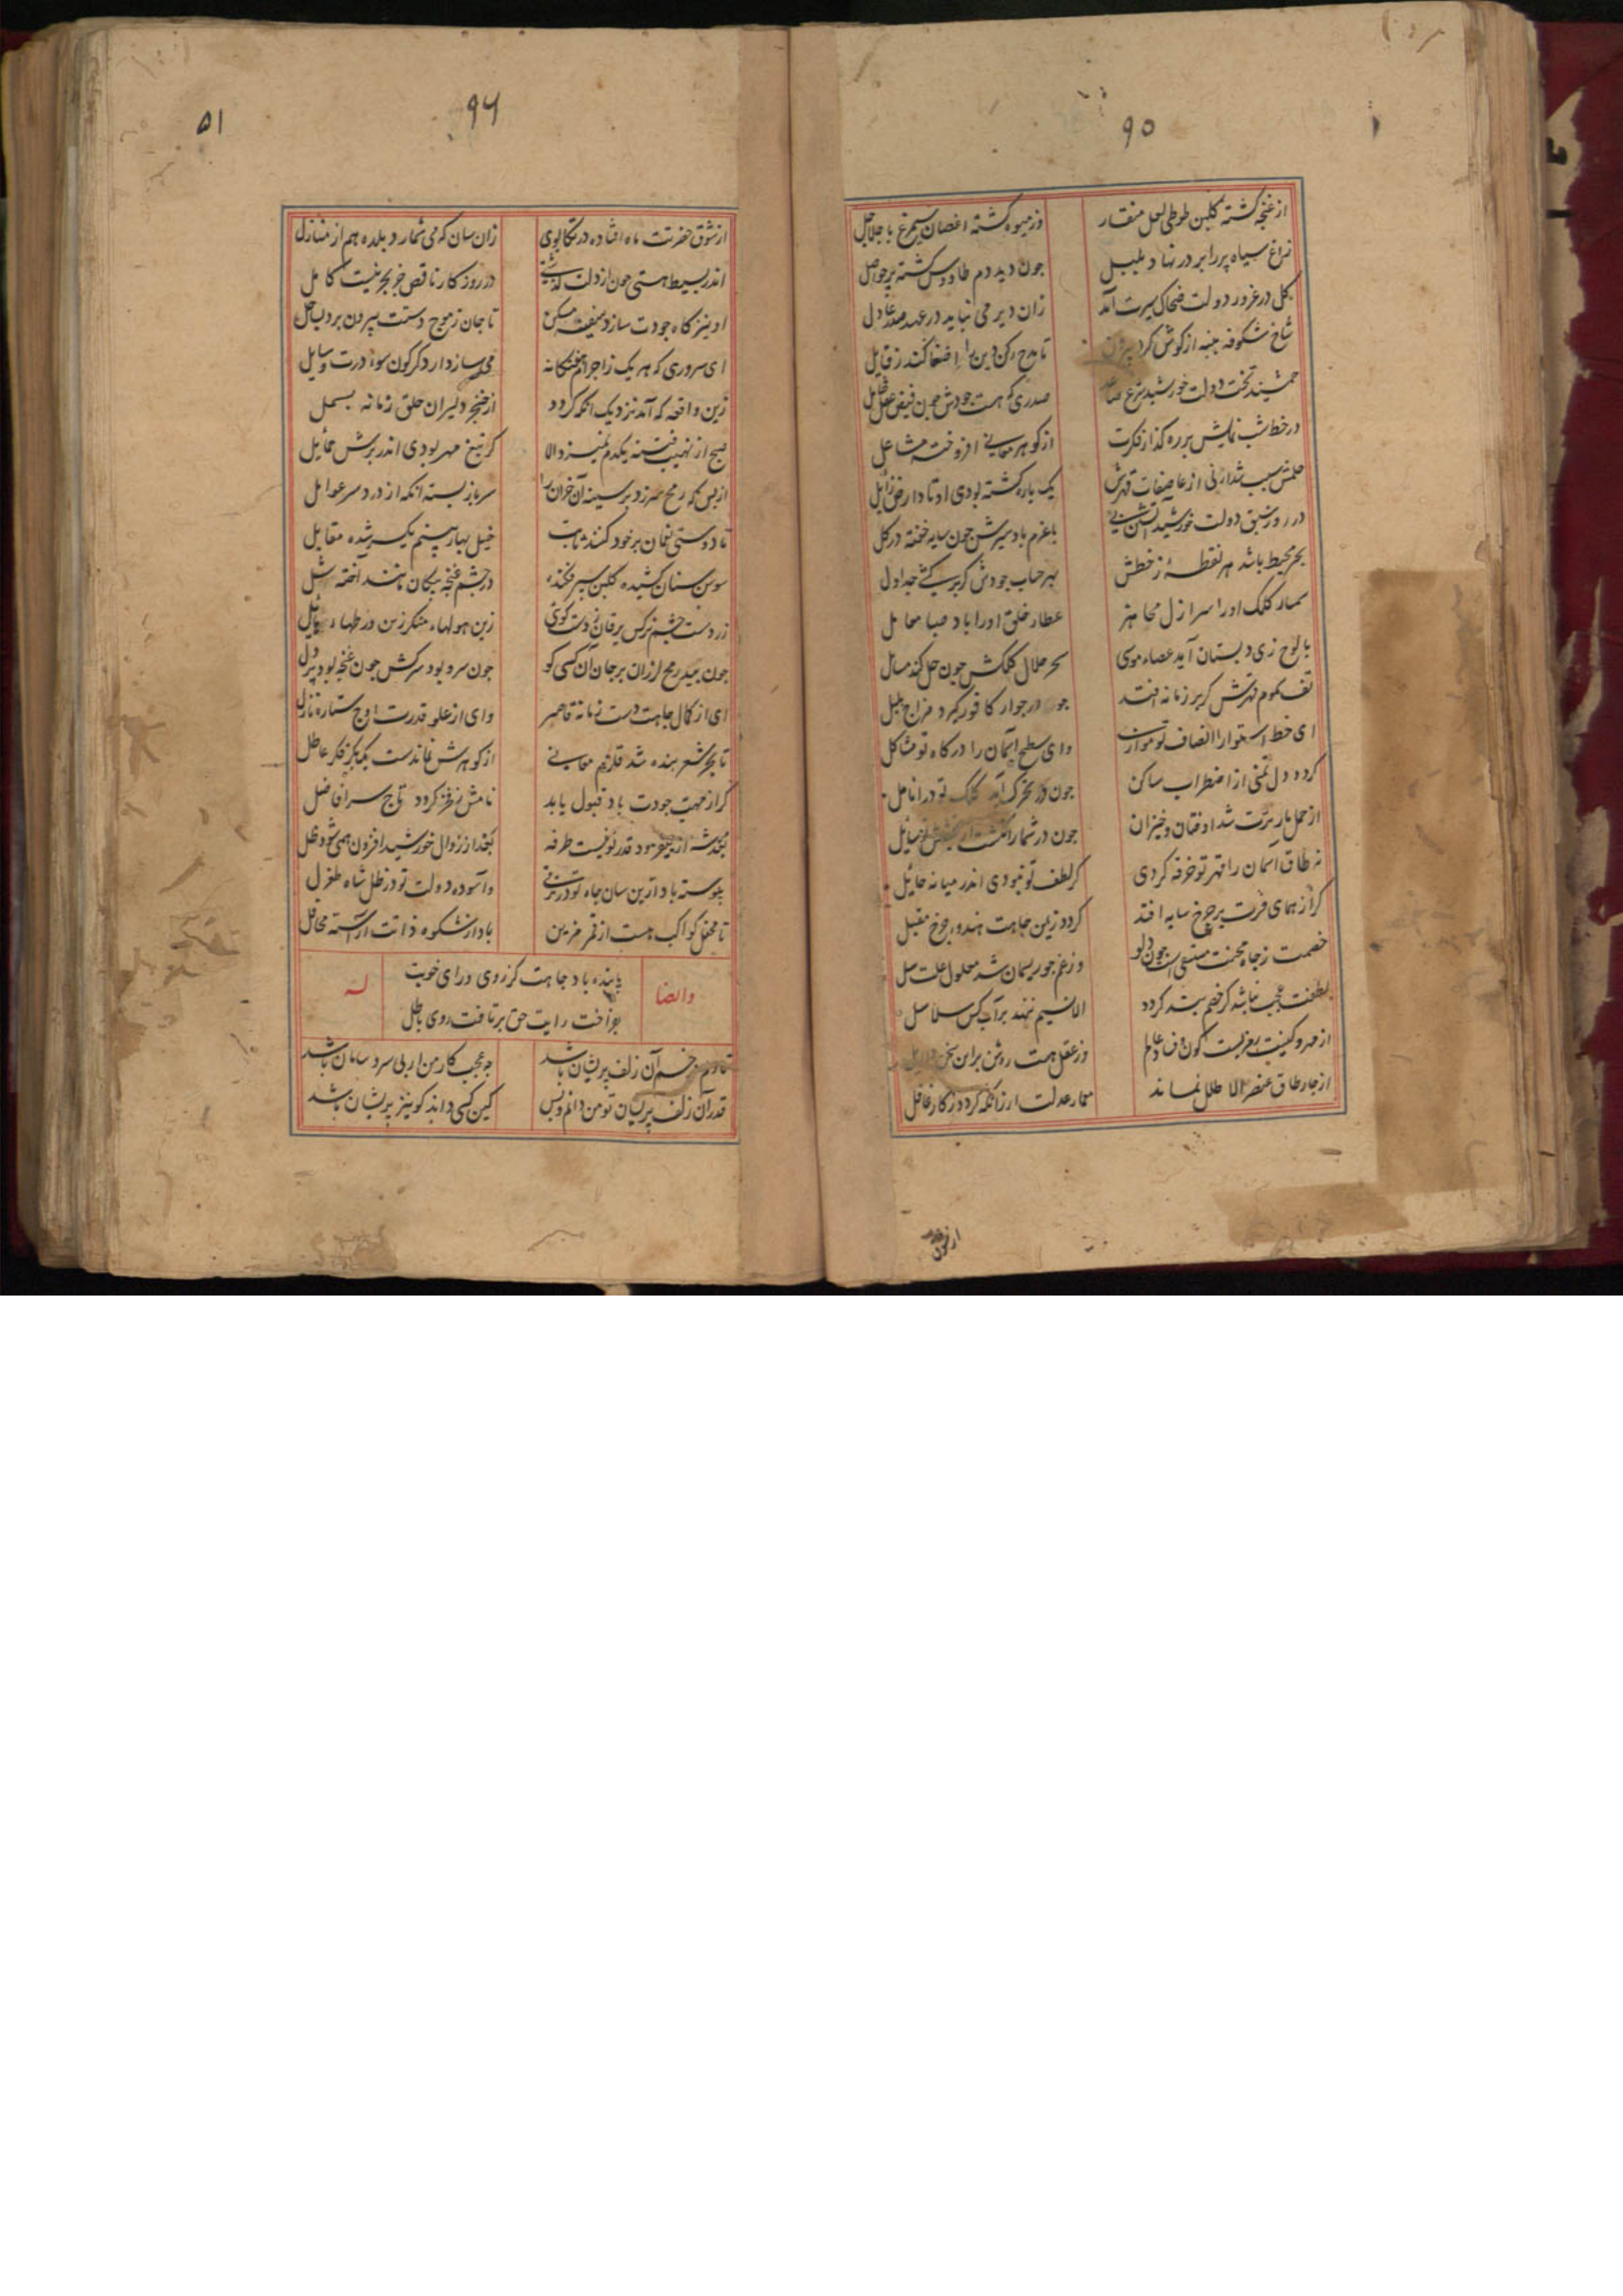 ۹۵
از غنچه گشته گلبن طوطی لعل منقار وز میوه گشته اغصان سیمرغ با جلاجل
زاغ سیاه پر را بر در نهاد بلبل چون دید دم طاوس گشته پر حواصل
گل در غرور دولت ضحاک سیرت آمد زان دیر می نپاید در عهد صدر عادل
شاخ شکوفه پنبه از گوش کرد بیرون تا مدح رکن دین را اصغا کند ز قایل
جمشید تخت دولت خورشید صدری که هست جودش چون فیض عقل
در خط شب نمایش بر ره گذار فکرت از گوهر معانی افروخته مشاعل
حلمش سبب شد ارنی از عاصفات قهرش یک باره گشته بودی اوتاد ارض زایل
در روز دولت خورشید با عزم باد سیرش چون سایه خفته در گل
بحر محیط باشد هر نقطهٔ ز خطش بهر حباب جودش گر برکشی جداول
سمسار کلک او را اسرار دل مجاهز عطار خلق او را باد صبا محامل
با لوح زی دبستان آید عصاء موسی سحر حلال کلکش چون حل کند مسایل
تف سموم قهرش گر بر زمانه افتد جوزا در جوار کافور گیرد مزاج پلپل
ای خط استوا را انصاف تو موازی وای سطح آسمان را درگاه تو مشاکل
گردد دل تمنی از اضطراب ساکن چون در تحرک آید کلک تو در انامل
از حمل بار برت شد اوفتان و خیزان چون در شمار انگشت از
نه طاق آسمان را قهر تو خرقه کردی گر لطف تو نبودی اندر میانه حایل
گر از همای قدرت بر چرخ سایه افتد گردد زیمن جاهت هندوء چرخ مقبل
خصمت ز جاه محنت مستسقی است چون دلو وز غم چو ریسمان شد محلول علت سل
لطفت عجب نباشد گر خصم بند گردد الا نسیم ننهد بر آب کس سلاسل
از مهر و کینت کون و فساد عالم وز عقل هست روشن بر این سخن دلایل
از چار طاق عنصر الا طلل نماند معمار عدلت ار زانکه گردد ز کار غافل
از شوق
۹۶
۵۱
از شوق حضرتت ماه افتاده در تکاپوی زان سان که می شمارد بلده هم از منازل
اندر بسیط هستی چون از دلت گذشتی در روزگار ناقص جز بحر نیست کامل
او نیز گاه جودت سازد سفینه مسکن تا جان ز موج دستت بیرون برد بساحل
ای سروری که هر یک ز اجرام هفتگانه می سازد ار دگرگون سوء درت وسایل
زین واقعه که آمد نزدیک آنکه گردد از خنجر دلیران حلق زمانه بسمل
صبح از نهیب فتنه یکدم نمیزد الا گر تیغ مهر بودی اندر برش حمایل
از بس که رمح سر زد بر سینه آن خزان را سر باز بسته آنکه از درد سر عوامل
تا دوستی نعمان بر خود کنند ثابت خیل بهار بینم یک سر شده مقابل
سوسن سنان کشیده گلبن سپر فکنده در چشم غنچه پیکان مانند آفته شل
زر دست چشم نرگس یرقان زدست گوئی زین هولهاء منکر زین ورطهاء هایل
چون بید رمح لرزان بر جان آن کسی کو چون سرو بود سرکش چون غنچه بود پر دل
ای از کمال جاهت دست زمانه قاصر وای از علو قدرت اوج ستاره نازل
تا بحر شعر بنده شد قلزم معانی از گوهرش نماندست یک بکر فکر عاطل
گر از مهب جودت باد قبول یابد نامش ز فخر گردد تاج سر افاضل
بگذشته از قدر تو نیست طرفه بعد از زوال خورشید افزون همی شود ظل
پیوسته باد ازین سان جاه تو در ترقی وآسوده دولت تو در ظل شاه طغرل
تا محفل کواکب هست از قمر مزین باد از شکوه ذاتت آراسته محافل
پاینده باد جاهت کز روی و رای خوبت
بفراخت رایت حق بر تافت روی باطل
وایضا له
تا دلم در خم آن زلف پریشان باشد چه عجب کار من ار بی سر و سامان باشد
قدر آن زلف پریشان تو من دانم و بس کین کسی داند کو نیز پریشان باشد